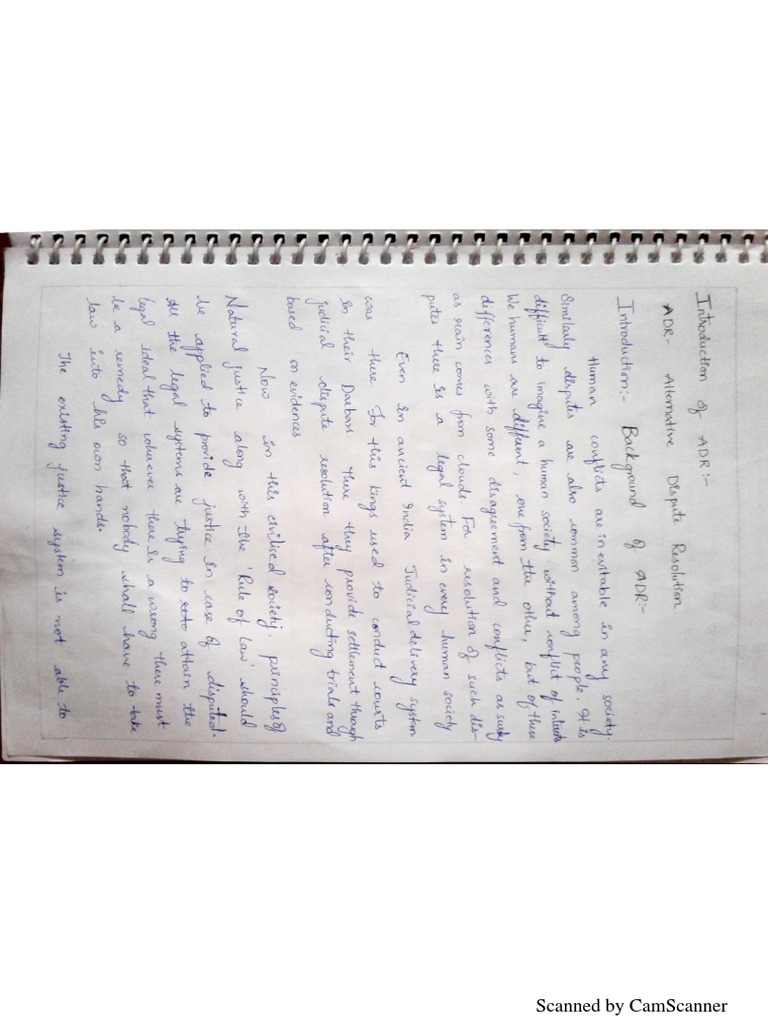 Introduction of ADR:-
ADR- Alternative Dispute Resolution
Introduction:- Background of ADR:-
Human conflicts are inevitable in any society.
Similarly disputes are also common among people. It is
difficult to imagine a human society without conflict of interests
We humans are different, one from the other, but of these
differences with some disagreement and conflicts as surely
as rain comes from clouds For resolution of such dis-
putes there is a legal system in every human society
Even in ancient India Judicial delivery system
was there For this kings used to conduct courts
in their Darbars There they provide settlement through
judicial dispute resolution after conducting trials and
based on evidences
Now in this civilised society. principles of
Natural justice along with the 'Rule of Law' should
be applied to provide justice in case of disputed.
All the legal systems are trying to attain the
legal ideal that wherever there is a wrong there must
be a remedy so that nobody shall have to take
law into his own hands.
The existing justice system is not able to
Scanned by CamScanner